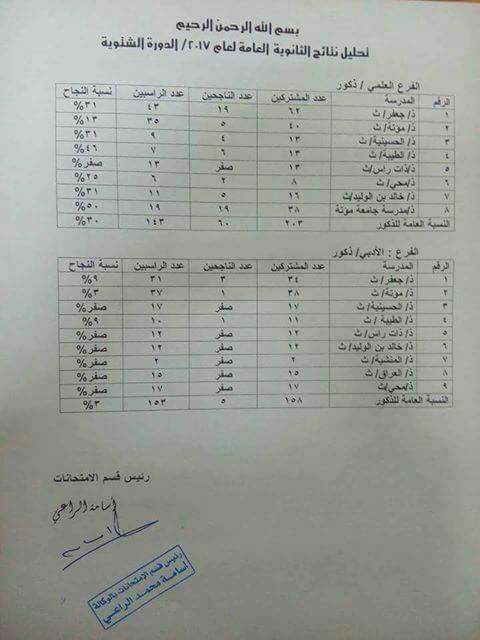 بسم الله الرحمن الرحيم
تحليل نتائج الثانوية العامة لعام ٢٠١٧/ الدورة الشتوية
الفرع العلمي / ذكور
الرقم المدرسة عدد المشتركين عدد الناجحين عدد الراسبين نسبة النجاح
١ ذ/ جعفر/ ث ٦٢ ١٩ ٤٣ ٣١%
٢ ذ/ مؤتة/ ث ٤٠ ٥ ٣٥ ١٣%
٣ ذ/ الحسينية/ ث ١٣ ٤ ٩ ٣١%
٤ ذ/ الطيبة/ ث ١٣ ٦ ٧ ٤٦%
٥ ذ/ذات راس/ ث ١٣ صفر ١٣ صفر%
٦ ذ/محي/ ث ٨ ٢ ٦ ٢٥%
٧ ذ/ خالد بن الوليد/ث ١٦ ٥ ١١ ٣١%
٨ ذ/مدرسة جامعة مؤتة ٣٨ ١٩ ١٩ ٥٠%
النسبة العامة للذكور ٢٠٣ ٦٠ ١٤٣ ٣٠%
الفرع : الأدبي/ ذكور
الرقم المدرسة عدد المشتركين عدد الناجحين عدد الراسبين نسبة النجاح
١ ذ/ جعفر/ ث ٣٤ ٣ ٣١ ٩%
٢ ذ/ مؤتة/ ث ٣٨ ١ ٣٧ ٣%
٣ ذ/ الحسينية/ ث ١٧ صفر ١٧ صفر%
٤ ذ/ الطيبة / ث ١١ ١ ١٠ ٩%
٥ ذ/ ذات راس/ ث ١٢ صفر ١٢ صفر%
٦ ذ/ خالد بن الوليد/ث ١٢ صفر ١٢ صفر%
٧ ذ/ المنشية/ ث ٢ صفر ٢ صفر%
٨ ذ/ العراق/ ث ١٥ صفر ١٥ صفر%
٩ ذ/محي/ث ١٧ صفر ١٧ صفر%
النسبة العامة للذكور ١٥٨ ٥ ١٥٣ ٣%
رئيس قسم الامتحانات
أسامة الراعي
رئيس قسم الامتحانات بالوكالة
اسامة محمد الراعي